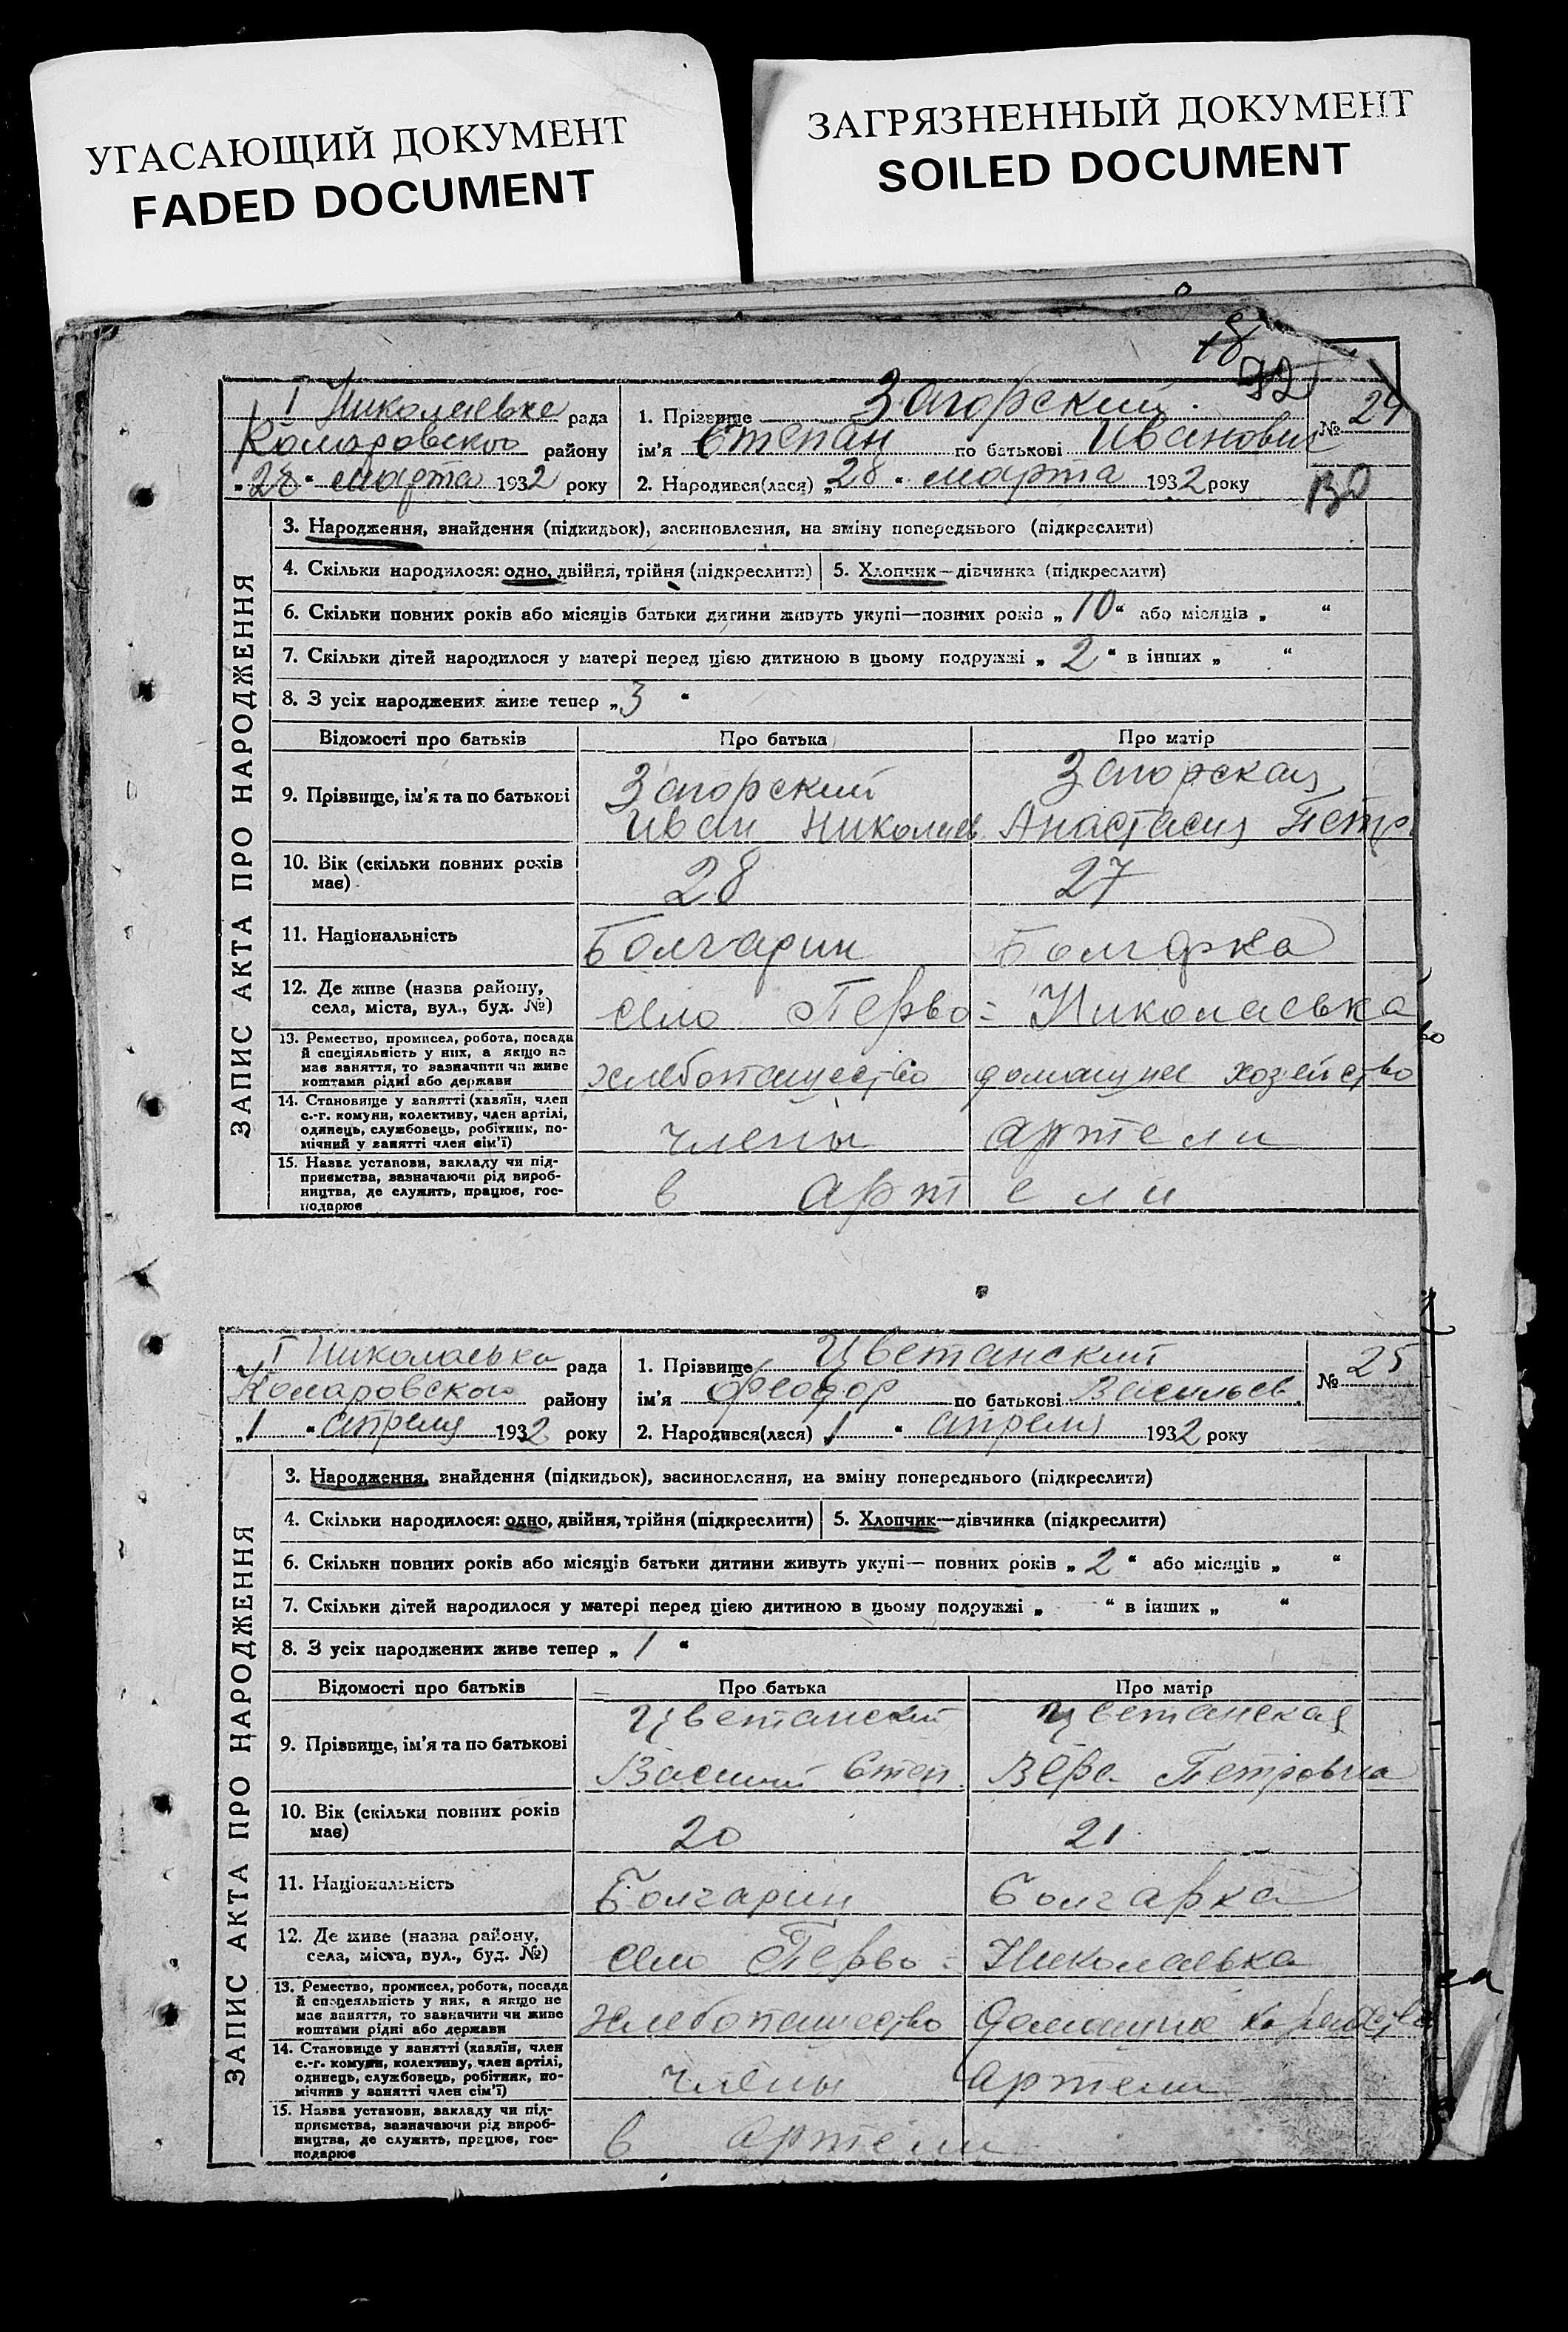 УГАСАЮЩИЙ ДОКУМЕНТ
FADED DOCUMENT
ЗАГРЯЗНЕННЫЙ ДОКУМЕНТ
SOILED DOCUMENT
18
92
І Николаевка рада
Комаровского району
„28“ марта 1932 року
1. Прізвище Загорский
ім'я Степан по батькові Иванович
2. Народився(лася) „28“ марта 1932 року
№ 24
ЗАПИС АКТА ПРО НАРОДЖЕННЯ
3. Народження, внайдення (підкидьок), засиновлення, на зміну попереднього (підкреслити)
4. Скільки народилося: одно, двійня, трійня (підкреслити)
5. Хлопчик—дівчинка (підкреслити)
6. Скільки повних років або місяців батьки дитини живуть укупі—повних років „10“ або місяців „ “
7. Скільки дітей народилося у матері перед цією дитиною в цьому подружжі „2“ в інших „ “
8. З усіх народжених живе тепер „3“
Відомості про батьків Про батька Про матір
9. Прізвище, ім'я та по батькові
Загорский Загорская
Иван Николаев Анастасия Петр
10. Вік (скільки повних років має) 28 27
11. Національність Болгарин Болгарка
12. Де живе (назва району, села, міста, вул., буд. №) село Перво=Николаевка
13. Ремество, промисел, робота, посада
й спеціяльність у них, а якщо не
має заняття, то зазначити чи живе
коштами рідні або держави
хлебопашество домашнее хозяйство
14. Становище у занятті (хазяїн, член
с.-г. комуни, колективу, член артілі,
одинець, службовець, робітник, по-
мічний у занятті член сім'ї)
члены артели
15. Назва установи, закладу чи під-
приємства, зазначаючи рід вироб-
ництва, де служить, працює, гос-
подарює
в артели
І Николаевка рада
Комаровского району
„1“ апреля 1932 року
1. Прізвище Цветанский
ім'я Феодор по батькові Васильев
2. Народився(лася) „1“ апреля 1932 року
№ 25
ЗАПИС АКТА ПРО НАРОДЖЕННЯ
3. Народження, внайдення (підкидьок), засиновлення, на зміну попереднього (підкреслити)
4. Скільки народилося: одно, двійня, трійня (підкреслити)
5. Хлопчик—дівчинка (підкреслити)
6. Скільки повних років або місяців батьки дитини живуть укупі— повних років „2“ або місяців „ “
7. Скільки дітей народилося у матері перед цією дитиною в цьому подружжі „ “ в інших „ “
8. З усіх народжених живе тепер „1“
Відомості про батьків Про батька Про матір
9. Прізвище, ім'я та по батькові
Цветанский Цветанская
Василий Степ. Вера Петровна
10. Вік (скільки повних років має) 20 21
11. Національність Болгарин Болгарка
12. Де живе (назва району, села, міста, вул., буд. №) село Перво=Николаевка
13. Ремество, промисел, робота, посада
й спеціяльність у них, а якщо не
має заняття, то зазначити чи живе
коштами рідні або держави
хлебопашество домашнее
14. Становище у занятті (хазяїн, член
с.-г. комуни, колективу, член артілі,
одинець, службовець, робітник, по-
мічник у занятті член сім'ї)
члены артели
15. Назва установи, закладу чи під-
приємства, зазначаючи рід вироб-
ництва, де служить, працює, гос-
подарює
в артели